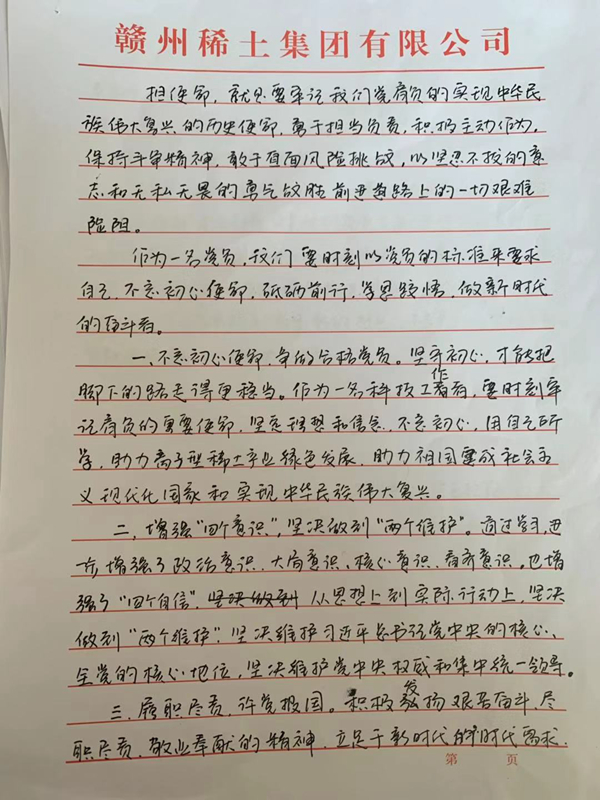 赣州稀土集团有限公司
担使命，就是要牢记我们党肩负的实现中华民
族伟大复兴的历史使命，勇于担当负责，积极主动作为，
保持斗争精神，敢于直面风险挑战，以坚忍不拔的意
志和无私无畏的勇气战胜前进道路上的一切艰难
险阻。
作为一名党员，我们要时刻以党员的标准来要求
自己，不忘初心使命，砥砺前行，学思践悟，做新时代
的奋斗者。
一、不忘初心使命，争做合格党员。坚守初心，才能把
脚下的路走得更稳当。作为一名科技工作者，要时刻牢
记肩负的重要使命，坚定理想和信念，不忘初心，用自己所
学，助力离子型稀土产业绿色发展，助力祖国建成社会主
义现代化国家和实现中华民族伟大复兴。
二、增强"四个意识"，坚决做到"两个维护"。通过学习，进
一步增强了政治意识、大局意识、核心意识、看齐意识，也增
强了"四个自信"，坚决做到从思想上到实际行动上，坚决
做到"两个维护"：坚决维护习近平总书记党中央的核心、
全党的核心地位，坚决维护党中央权威和集中统一领导。
三、履职尽责，许党报国。积极发扬艰苦奋斗、尽
职尽责、敬业奉献的精神，立足于新时代的时代需求，
第 页